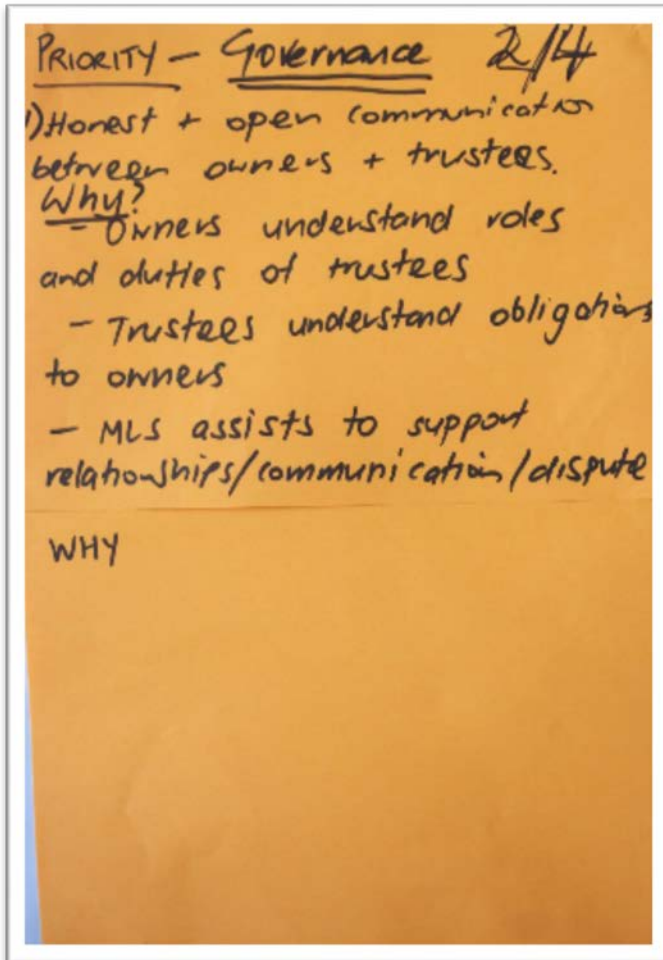 PRIORITY – Governance 2/4
1) Honest + open communication
between owners + trustees.
Why?
- Owners understand roles
and duties of trustees
- Trustees understand obligations
to owners
- MLS assists to support
relationships/communication/dispute
WHY